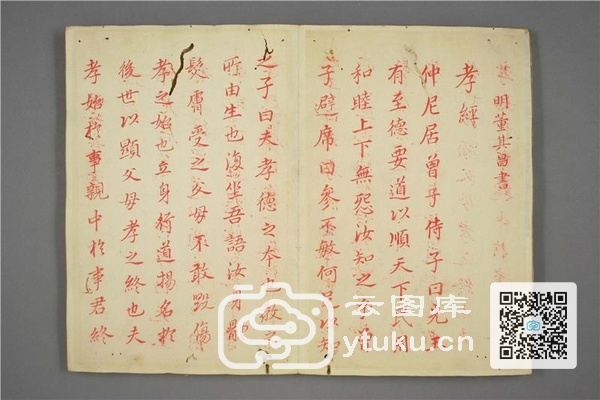 明董其昌書
孝經
仲尼居曾子侍子曰先王
有至德要道以順天下民用
和睦上下無怨汝知之乎曾
子避席曰參不敏何足以知
之子曰夫孝德之本也教之
所由生也復坐吾語汝身體
髮膚受之父母不敢毀傷
孝之始也立身行道揚名於
後世以顯父母孝之終也夫
孝始於事親中於事君終
云图库
ytuku.cn